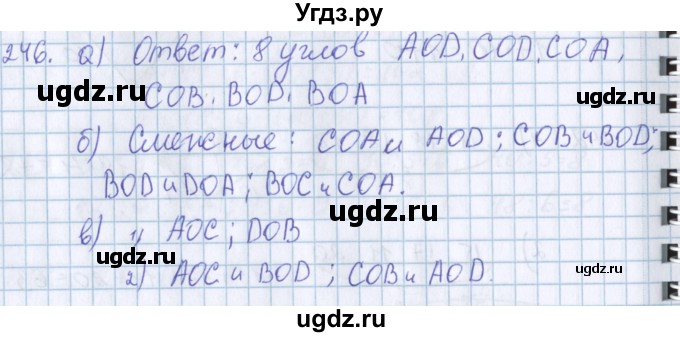 Угдз.ру
246. а) Ответ: 8 углов AOD, COD, COA,
ugdz.ru ugdz.ru
COB, BOD, BOA
б) Смежные: COA и AOD; COB и BOD;
BOD и DOA; BOC и COA.
ugdz.ru
в) 1) AOC; DOB
ugdz.ru ugdz.ru
2) AOC и BOD; COB и AOD.
ugdz.ru